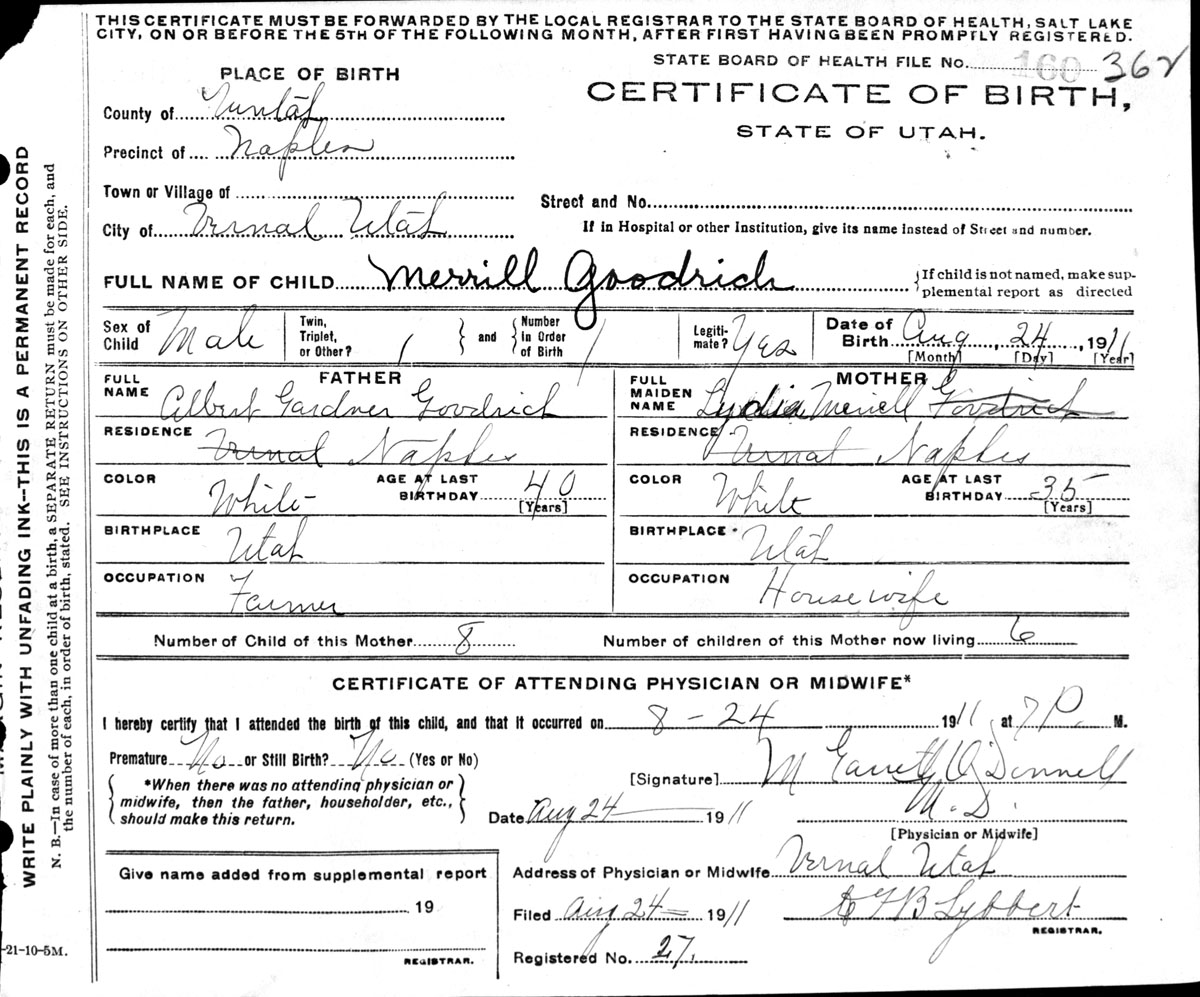 THIS CERTIFICATE MUST BE FORWARDED BY THE LOCAL REGISTRAR TO THE STATE BOARD OF HEALTH, SALT LAKE
CITY, ON OR BEFORE THE 5TH OF THE FOLLOWING MONTH, AFTER FIRST HAVING BEEN PROMPTLY REGISTERED.
STATE BOARD OF HEALTH FILE No. 160 362
PLACE OF BIRTH
CERTIFICATE OF BIRTH,
STATE OF UTAH.
County of Uintah
Precinct of Naples
Town or Village of
Street and No.
City of Vernal Utah
If in Hospital or other Institution, give its name instead of Street and number.
FULL NAME OF CHILD Merrill Goodrich {If child is not named, make sup-
plemental report as directed
Sex of Child Male Twin, Triplet, or Other? 1 } and { Number in Order of Birth 1 Legiti-mate? Yes Date of Birth Aug, 24, 1911
[Month] [Day] [Year]
FATHER
FULL NAME Albert Gardner Goodrich
RESIDENCE Vernal Naples
COLOR White AGE AT LAST BIRTHDAY 40 [Years]
BIRTHPLACE Utah
OCCUPATION Farmer
MOTHER
FULL MAIDEN NAME Lydia Merrell Goodrich
RESIDENCE Vernal Naples
COLOR White AGE AT LAST BIRTHDAY 35 [Years]
BIRTHPLACE Utah
OCCUPATION Housewife
Number of Child of this Mother 8 Number of children of this Mother now living 6
CERTIFICATE OF ATTENDING PHYSICIAN OR MIDWIFE*
I hereby certify that I attended the birth of this child, and that it occurred on 8-24 1911, at 7 P. M.
Premature No or Still Birth? No (Yes or No)
{ *When there was no attending physician or
midwife, then the father, householder, etc.,
should make this return. }
[Signature] M Garrett O'Donnell
M.D.
Date Aug 24 1911
[Physician or Midwife]
Give name added from supplemental report
19
REGISTRAR.
Address of Physician or Midwife Vernal Utah
Filed Aug 24 1911 C F B Lybbert
REGISTRAR.
Registered No. 27.
WRITE PLAINLY WITH UNFADING INK--THIS IS A PERMANENT RECORD
N. B.—In case of more than one child at a birth, a SEPARATE RETURN must be made for each, and
the number of each, in order of birth, stated. SEE INSTRUCTIONS ON OTHER SIDE.
-21-10-5M.